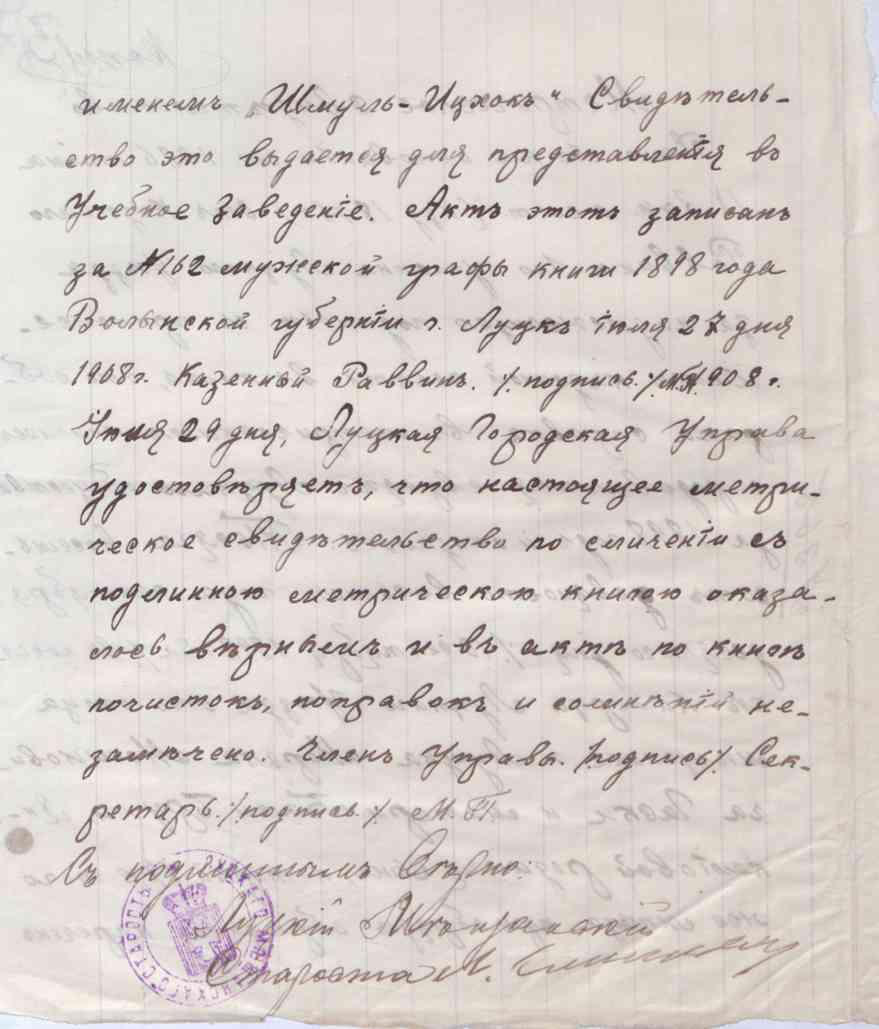 именемъ „Шмуль-Ицхокъ“ Свидѣтель-
ство это выдается для представленія въ
Учебное Заведеніе. Актъ этотъ записанъ
за №162 мужской графы книги 1898 года
Волынской губерніи г. Луцкъ іюля 27 дня
1908 г. Казенный Раввинъ. /.подпись./ М.П. 1908 г.
Іюля 29 дня, Луцкая Городская Управа
удостовѣряетъ, что настоящее метри-
ческое свидѣтельство по сличеніи съ
подлинною метрическою книгою оказа-
лось вѣрнымъ и въ актѣ по книгѣ
почистокъ, поправокъ и сомнѣній не-
замѣчено. Членъ Управы. /подпись/. Сек-
ретарь. /.подпись./. М.П.
Съ подлиннымъ вѣрно:
Луцкій Мѣщанскій
Староста М.